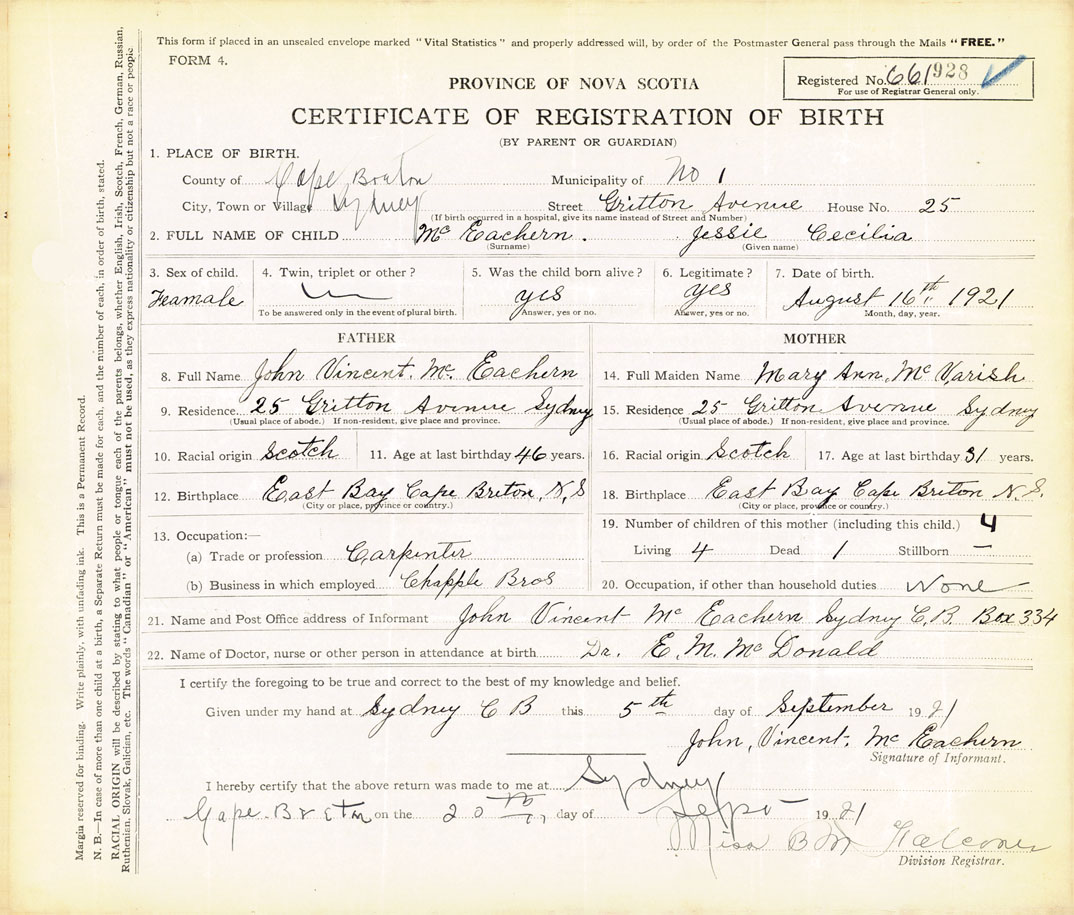 This form if placed in an unsealed envelope marked "Vital Statistics" and properly addressed will, by order of the Postmaster General pass through the Mails "FREE."
FORM 4.
Registered No. 661928
For use of Registrar General only.
PROVINCE OF NOVA SCOTIA
CERTIFICATE OF REGISTRATION OF BIRTH
(BY PARENT OR GUARDIAN)
1. PLACE OF BIRTH.
County of Cape Breton Municipality of No 1
City, Town or Village Sydney Street Gritton Avenue House No. 25
(If birth occurred in a hospital, give its name instead of Street and Number)
2. FULL NAME OF CHILD Mc Eachern. Jessie Cecilia
(Surname) (Given name)
3. Sex of child. 4. Twin, triplet or other? 5. Was the child born alive? 6. Legitimate? 7. Date of birth.
Feamale yes yes August 16th 1921
To be answered only in the event of plural birth. Answer, yes or no. Answer, yes or no. Month, day, year.
FATHER
8. Full Name John Vincent. Mc. Eachern
9. Residence. 25 Gritton Avenue Sydney
(Usual place of abode.) If non-resident, give place and province.
10. Racial origin Scotch 11. Age at last birthday 46 years.
12. Birthplace East Bay Cape Breton, N,S
(City or place, province or country.)
13. Occupation:—
(a) Trade or profession Carpenter
(b) Business in which employed Chapple Bros
MOTHER
14. Full Maiden Name Mary Ann, Mc Varish
15. Residence 25 Gritton Avenue Sydney
(Usual place of abode.) If non-resident, give place and province.
16. Racial origin Scotch 17. Age at last birthday 31 years.
18. Birthplace East Bay Cape Breton N.S.
(City or place, province or country.)
19. Number of children of this mother (including this child.) 4
Living 4 Dead 1 Stillborn —
20. Occupation, if other than household duties None
21. Name and Post Office address of Informant John Vincent Mc Eachern Sydney C.B. Box 334
22. Name of Doctor, nurse or other person in attendance at birth Dr. E. M. Mc Donald
I certify the foregoing to be true and correct to the best of my knowledge and belief.
Given under my hand at Sydney C B this 5th day of September 1921
John, Vincent. Mc Eachern
Signature of Informant.
I hereby certify that the above return was made to me at Sydney
Cape Breton on the 20th day of Sept 1921
Miss B M Falconer
Division Registrar.
Margin reserved for binding. Write plainly, with unfading ink. This is a Permanent Record.
N. B.—In case of more than one child at a birth, a Separate Return must be made for each, and the number of each, in order of birth, stated.
RACIAL ORIGIN will be described by stating to what people or tongue each of the parents belongs, whether English, Irish, Scotch, French, German, Russian,
Ruthenian, Slovak, Galician, etc. The words "Canadian" or "American" must not be used, as they express nationality or citizenship but not a race or people.